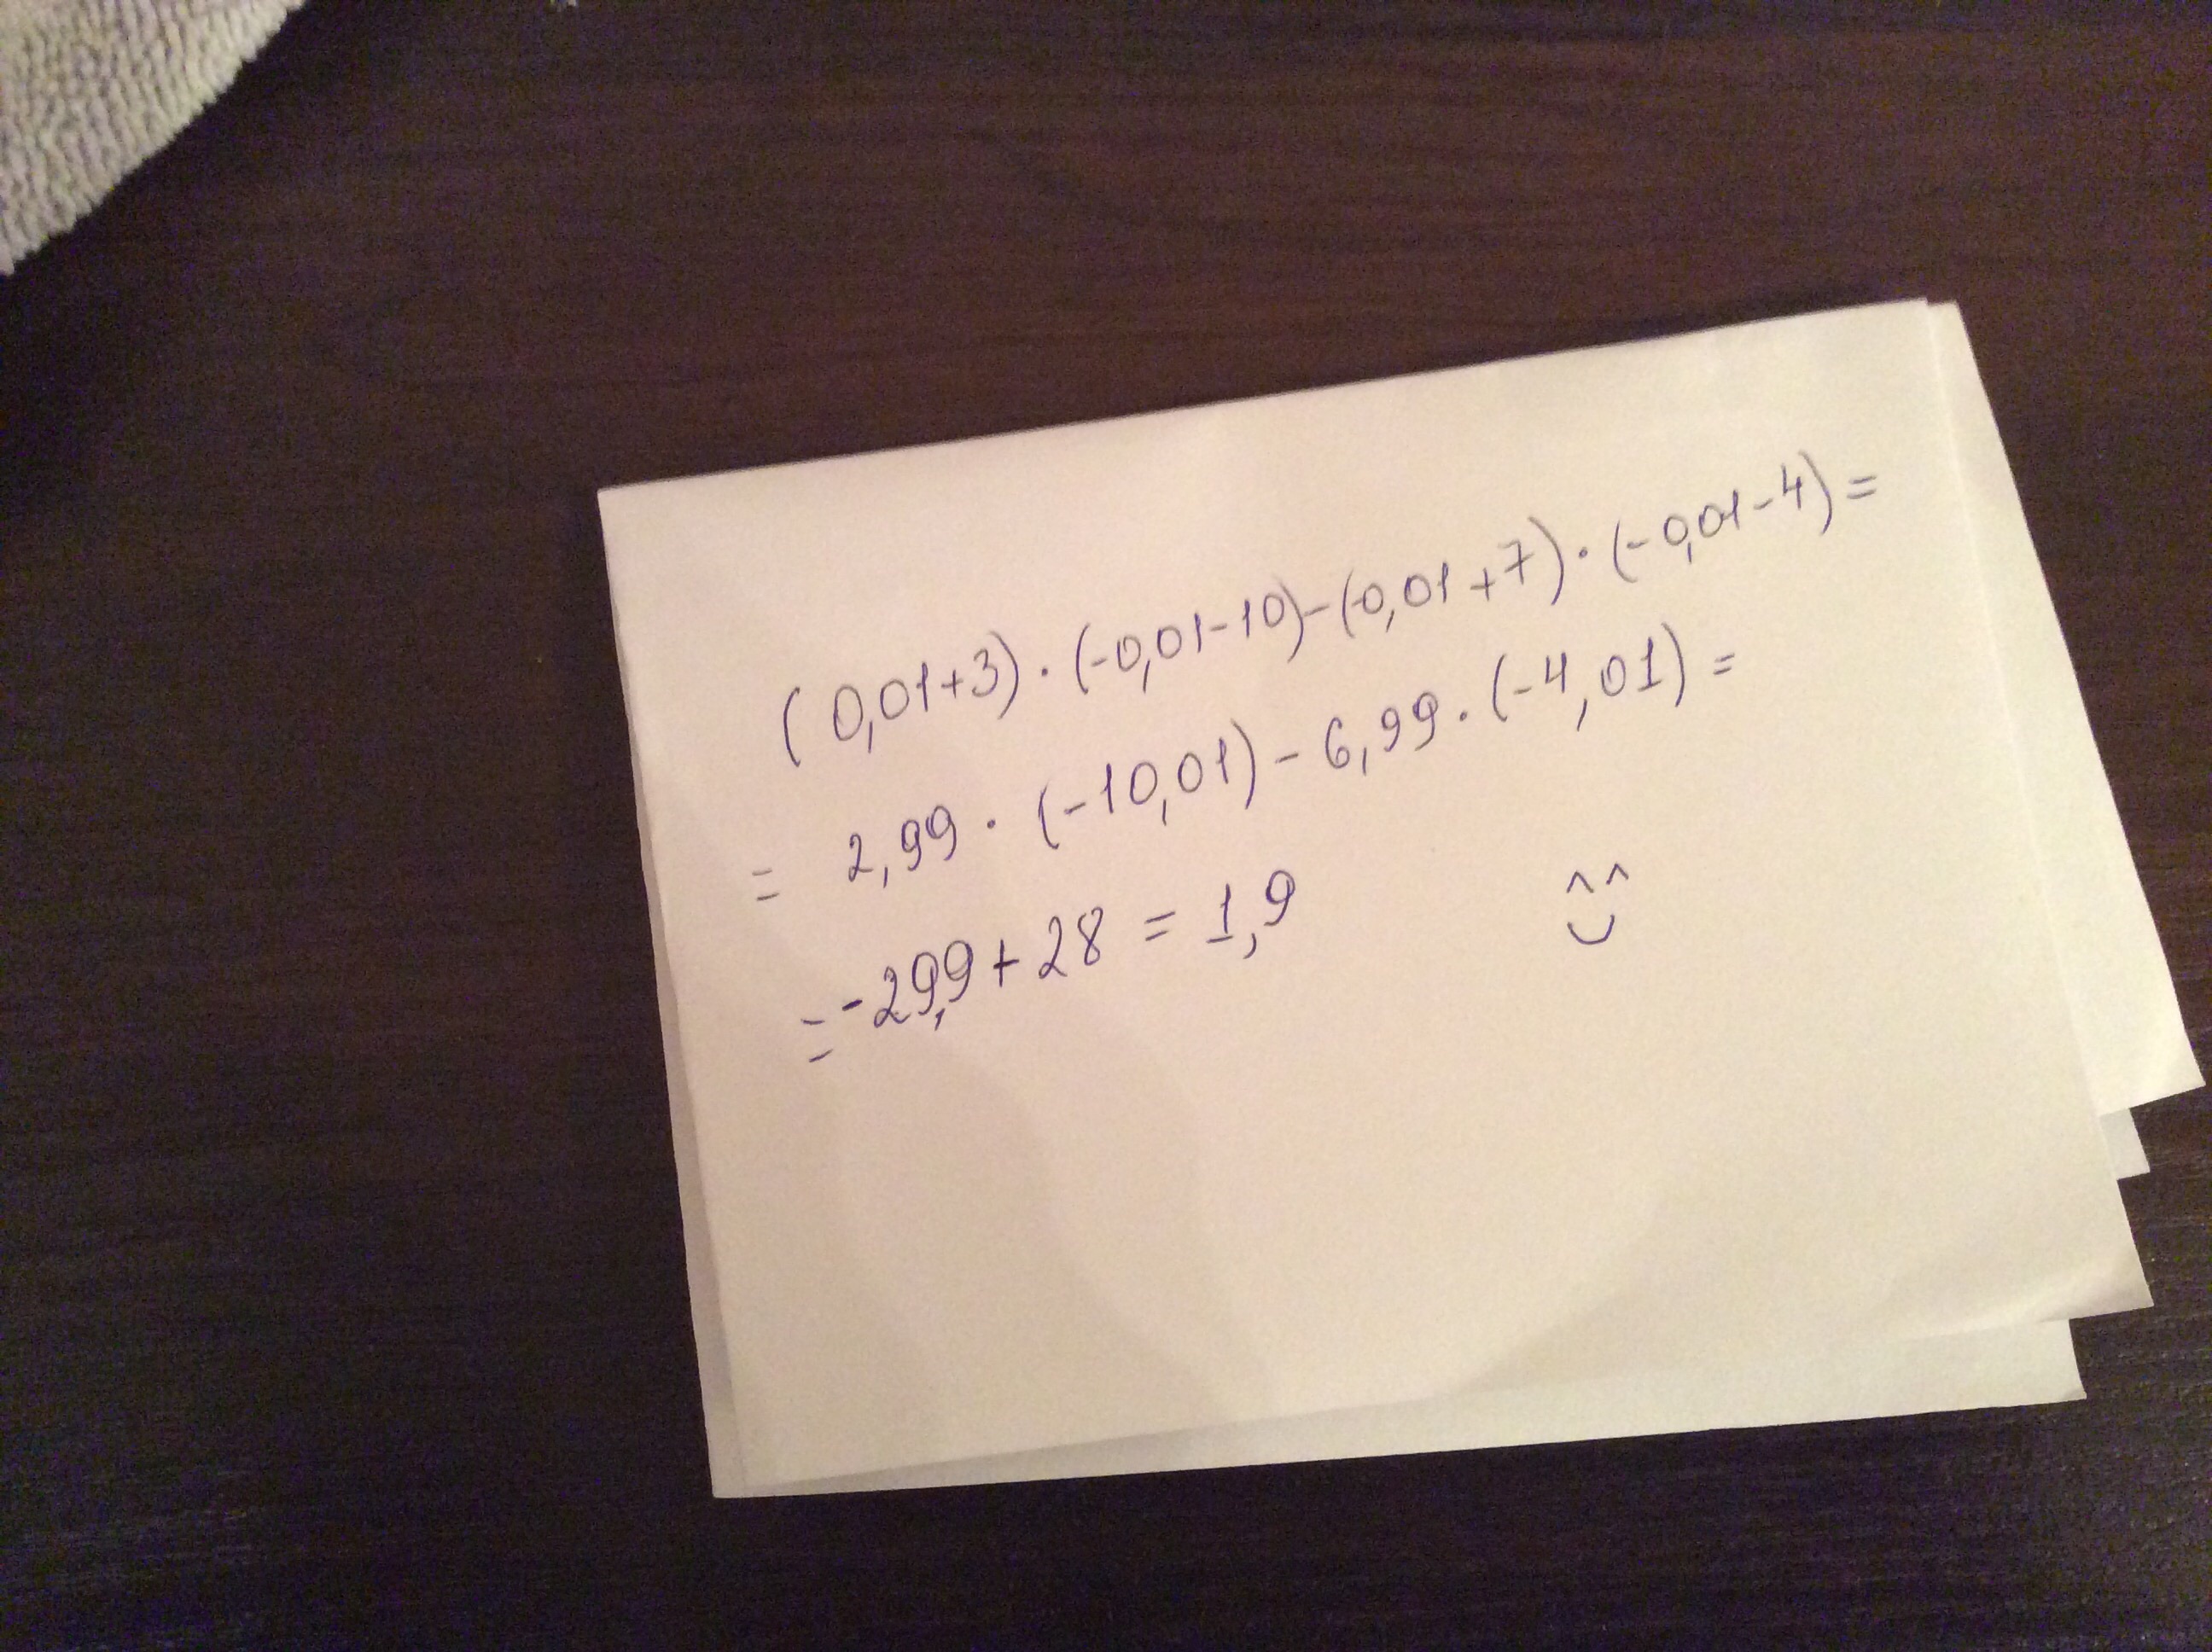 (0,01+3)·(-0,01-10)-(-0,01+7)·(-0,01-4)=
= 2,99·(-10,01)-6,99·(-4,01)=
=-29,9+28=1,9
^^